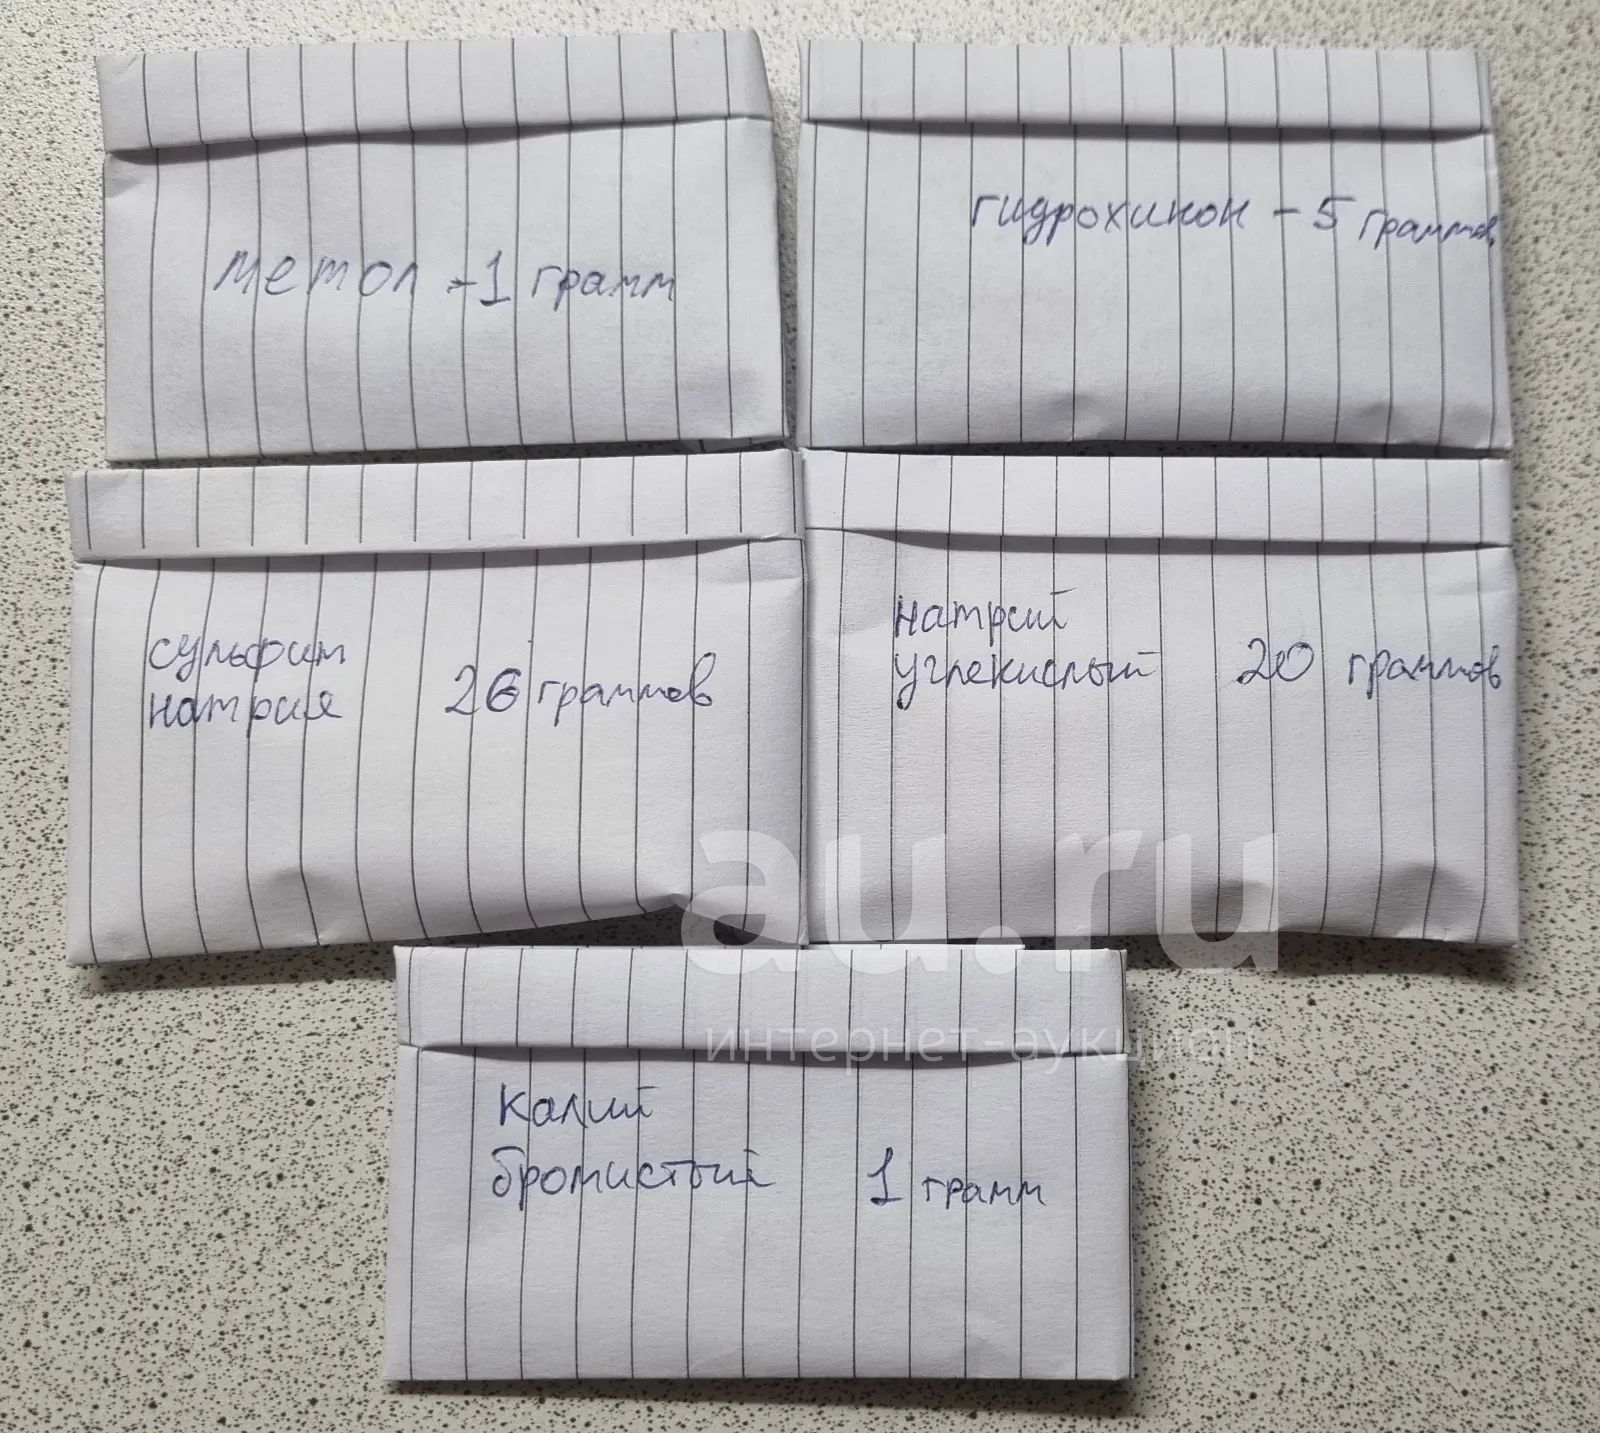 метол - 1 грамм
гидрохинон - 5 граммов
сульфит
натрия 26 граммов
натрий
углекислый 20 граммов
калий
бромистый 1 грамм
au.ru
интернет-аукцион